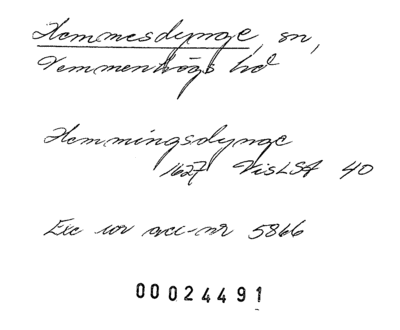 Hemmesdynge, sn,
Vemmenhögs hd
Hemmingsdynge
1627 VisLSA 40
Exc ur acc-nr 5866
00024491